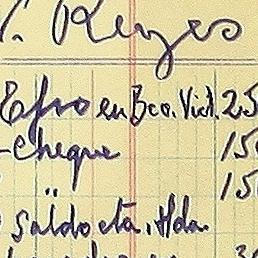 Reyes
Efvo en Bco. Vict. 25
cheque 15
" 15
Saldo cta. Hda.